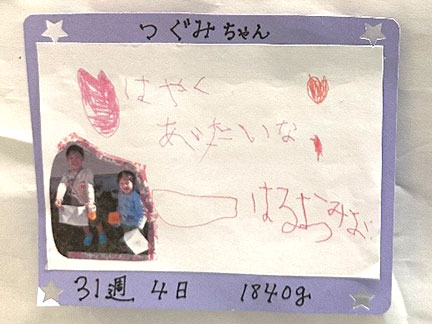 つぐみちゃん
はやく
あいたいな
31週 4日 1840g